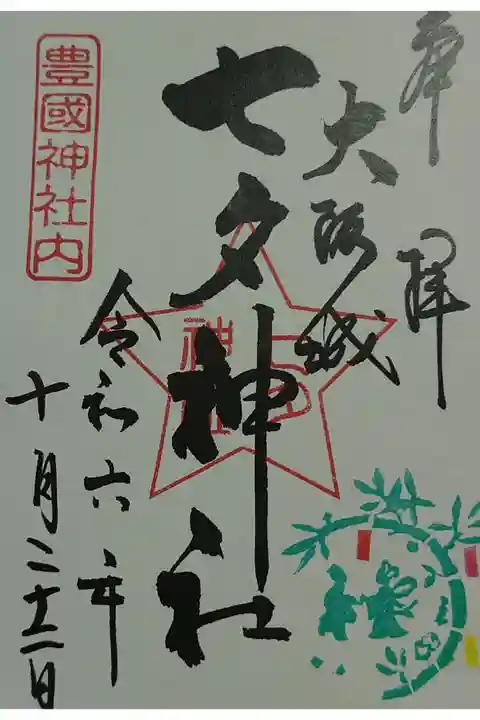 奉拝
大阪城
七夕神社
豊國神社内
令和六年
十月二十二日